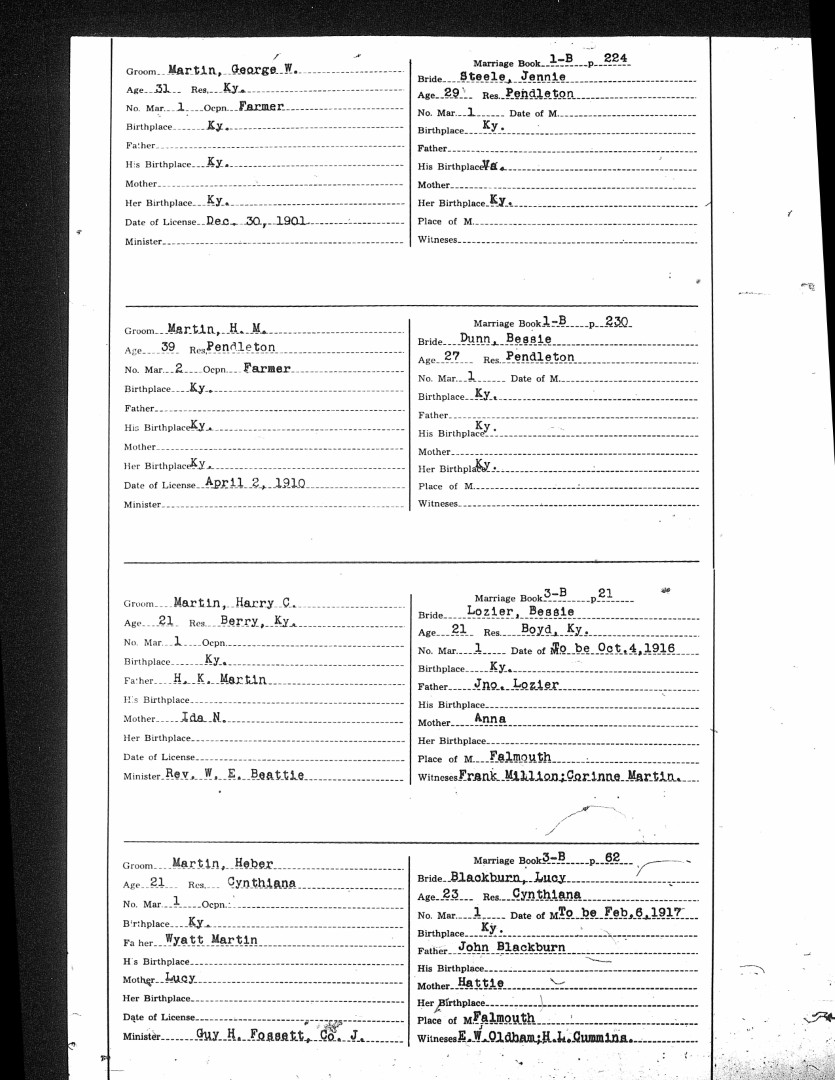 Groom Martin, George W.
Age 31 Res. Ky.
No. Mar. 1 Ocpn. Farmer
Birthplace Ky.
Father
His Birthplace Ky.
Mother
Her Birthplace Ky.
Date of License Dec. 30, 1901
Minister
Marriage Book 1-B p. 224
Bride Steele, Jennie
Age 29 Res. Pendleton
No. Mar. 1 Date of M.
Birthplace Ky.
Father
His Birthplace Va.
Mother
Her Birthplace Ky.
Place of M.
Witnesses
Groom Martin, H. M.
Age 39 Res. Pendleton
No. Mar. 2 Ocpn. Farmer
Birthplace Ky.
Father
His Birthplace Ky.
Mother
Her Birthplace Ky.
Date of License April 2, 1910
Minister
Marriage Book 1-B p. 230
Bride Dunn, Bessie
Age 27 Res. Pendleton
No. Mar. 1 Date of M.
Birthplace Ky.
Father
His Birthplace Ky.
Mother
Her Birthplace Ky.
Place of M.
Witnesses
Groom Martin, Harry C.
Age 21 Res. Berry, Ky.
No. Mar. 1 Ocpn.
Birthplace Ky.
Father H. K. Martin
His Birthplace
Mother Ida N.
Her Birthplace
Date of License
Minister Rev. W. E. Beattie
Marriage Book 3-B p. 21
Bride Lozier, Bessie
Age 21 Res. Boyd, Ky.
No. Mar. 1 Date of M. To be Oct.4,1916
Birthplace Ky.
Father Jno. Lozier
His Birthplace
Mother Anna
Her Birthplace
Place of M. Falmouth
Witnesses Frank Million;Corinne Martin.
Groom Martin, Heber
Age 21 Res. Cynthiana
No. Mar. 1 Ocpn.
Birthplace Ky.
Father Wyatt Martin
His Birthplace
Mother Lucy
Her Birthplace
Date of License
Minister Guy H. Fossett, Co. J.
Marriage Book 3-B p. 62
Bride Blackburn, Lucy
Age 23 Res. Cynthiana
No. Mar. 1 Date of M. To be Feb.6,1917
Birthplace Ky.
Father John Blackburn
His Birthplace
Mother Hattie
Her Birthplace
Place of M. Falmouth
Witnesses E.W.Oldham;H.L.Cummins.